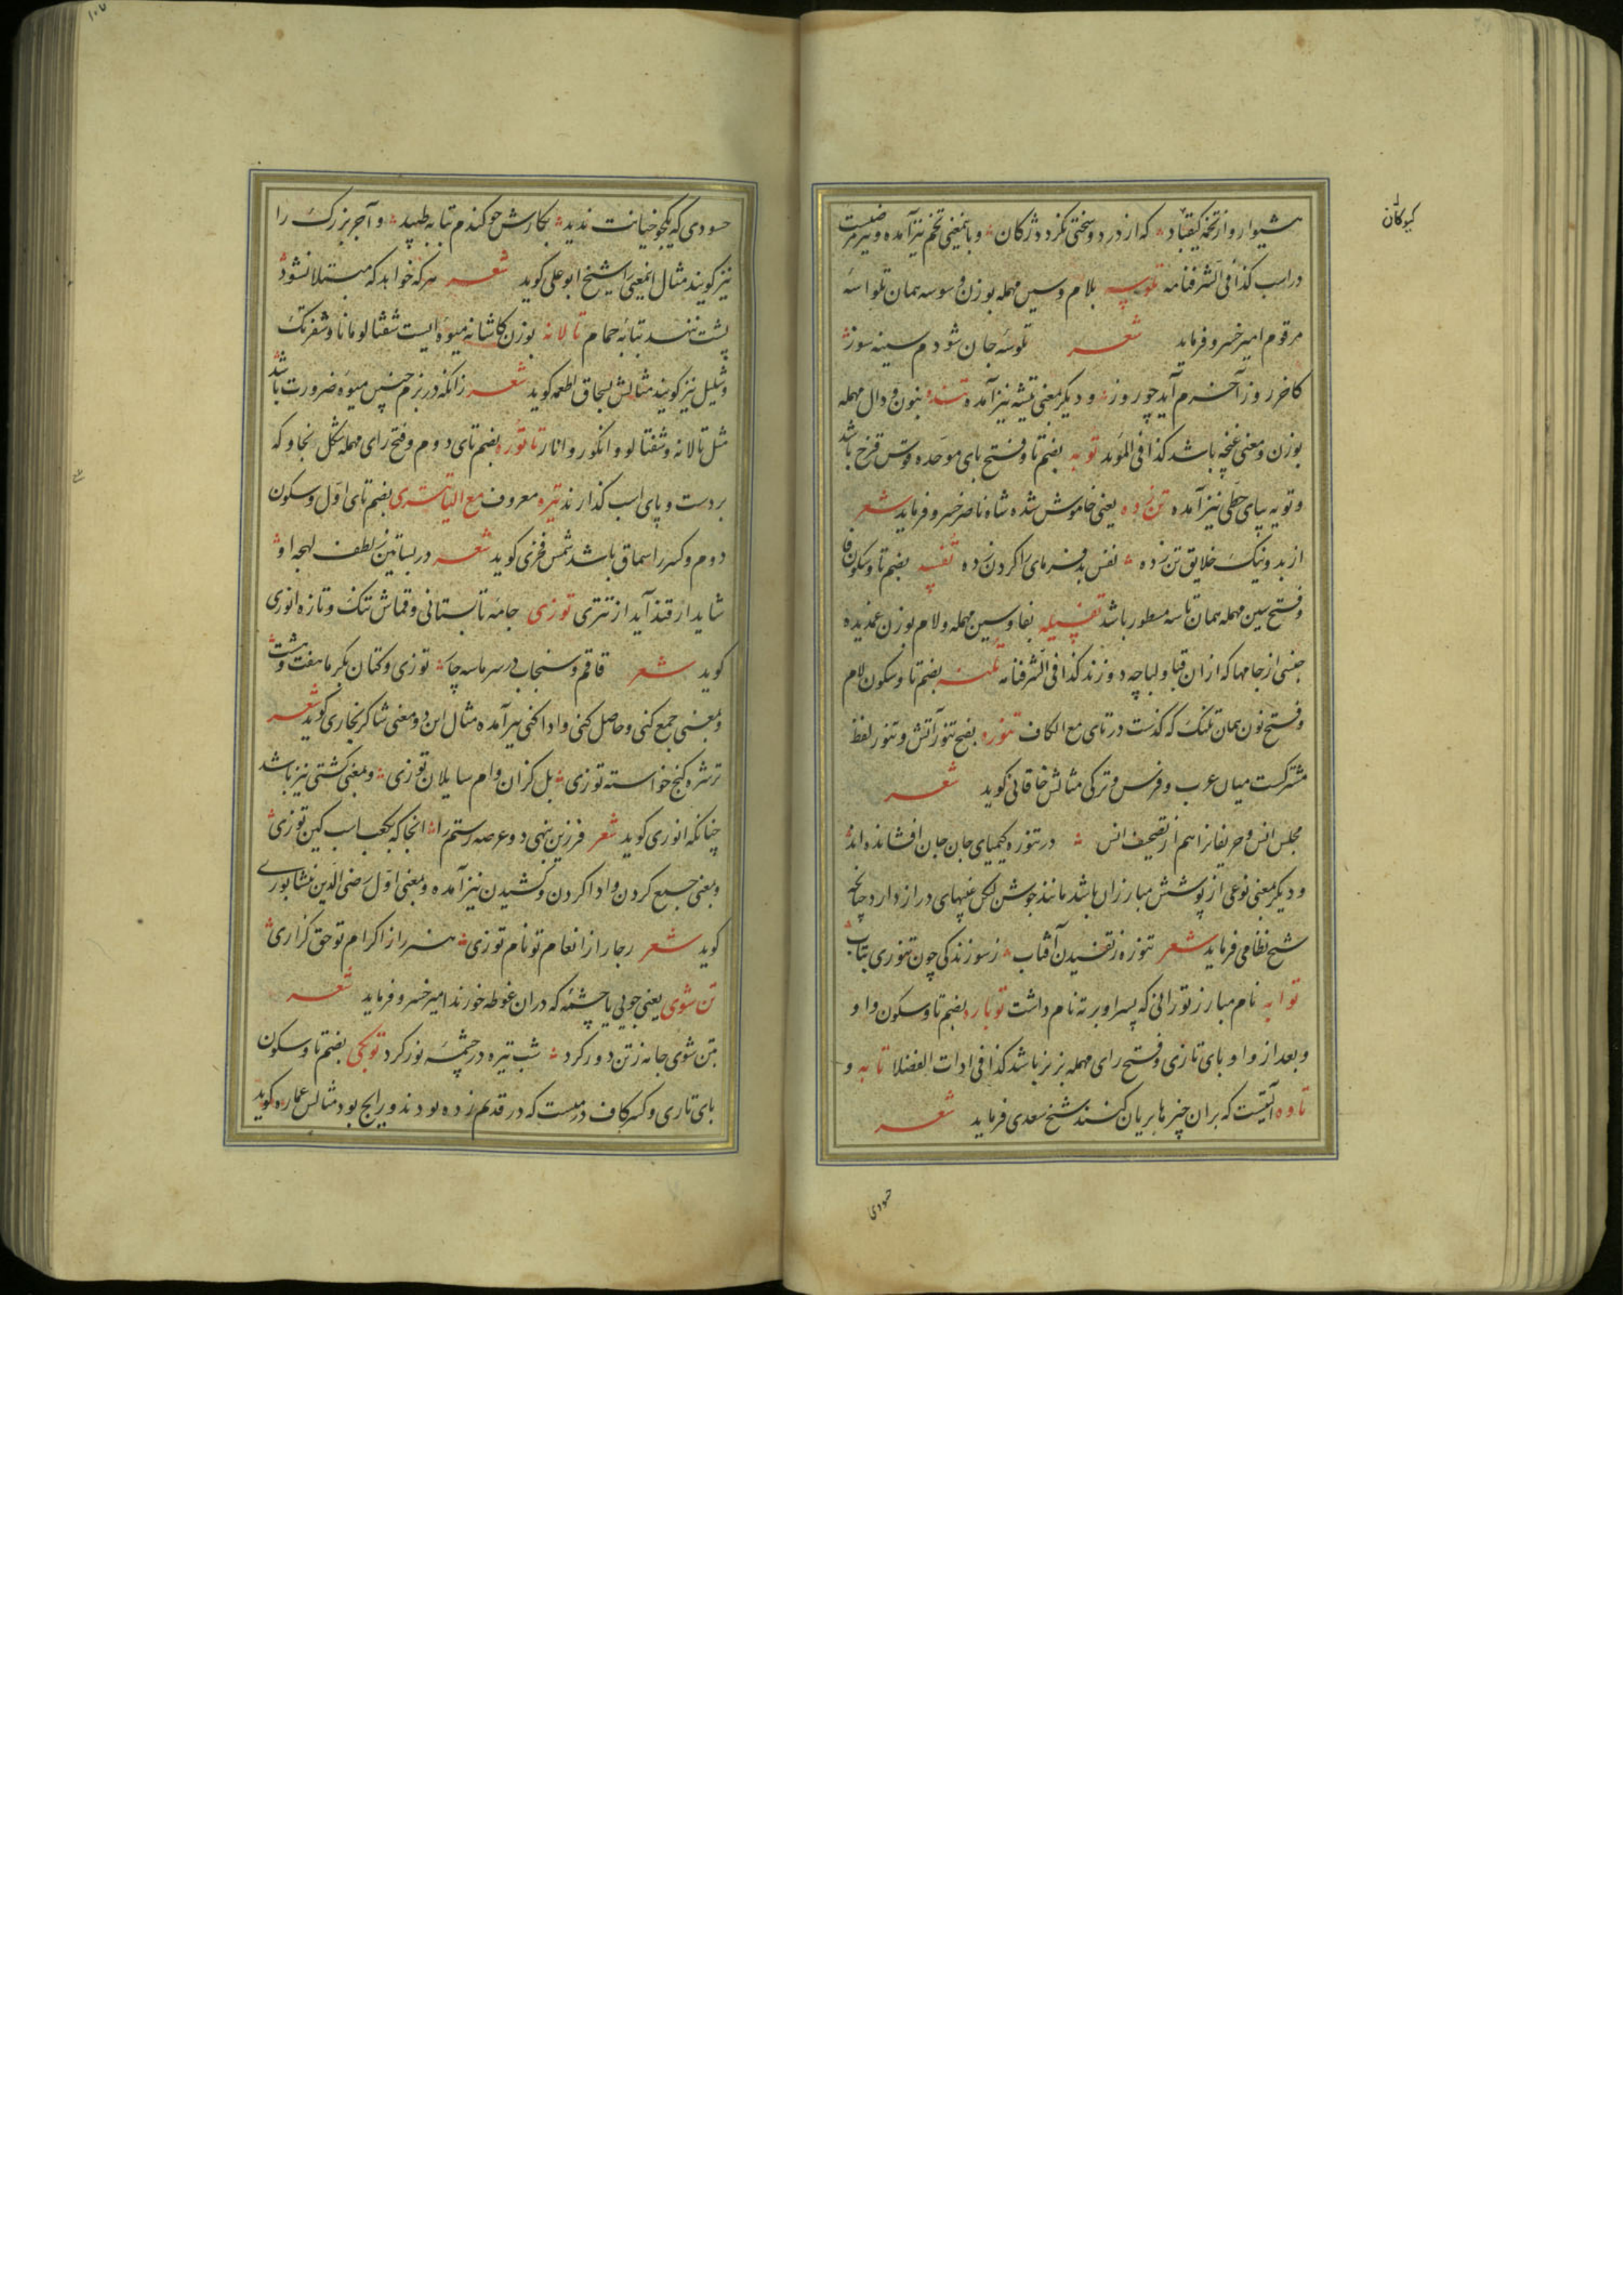 هشیوار و از تخمه کیقباد که از درد و سختی نکرد دژکان و بایمعنی تخم نیز آمده و نیز مرضیست
کیوکان
در اسب کذا فی الشرفنامه تلوسه بلام و سین مهمله بوزن وسوسه همان تلواسه
مرقوم امیر خسرو فرماید شعر تلوسه جان شودم سینه سوز
کاخر روز آخرم آید چو روز و دیگر بمعنی تیشه نیز آمده تنده بنون و دال مهمله
بوزن و معنی غنچه باشد کذا فی المؤید توبه بضم تا و فتح بای موحده قوس قزح باشد
و تویه بیای حطی نیز آمده تن زده یعنی خاموش شده شاه ناصر خسرو فرماید شعر
از بد و نیک خلایق تن زده نفس بد فرمای را کردن زده تفسه بضم تا و سکون فا
و فتح سین مهمله همان تاسه مسطور باشد تفسیله بفا و سین مهمله و لام بوزن غدیده
جنسی از جامها که از ان قبا و لباچه دوزند کذا فی الشرفنامه تلنه بضم تا و سکون لام
و فتح نون همان تلنک که گذشت در تای مع الکاف تنوره بفتح تنور آتش و تنور لفظ
مشترکست میان عرب و فرس و ترکی مثالش خاقانی گوید شعر
مجلس انس و حریفانرا هم از تصحیف انس در تنوره کیمیای جان جان افشانده اند
و دیگر بمعنی نوعی از پوشش مبارزان باشد مانند جوشن لیکن غیبهای دراز دارد چنانچه
شیخ نظامی فرماید شعر تنوره ز تفسیدن آفتاب ز سوزندکی چون تنوری بتاب
توابه نام مبارز تورانی که پسر او برته نام داشت توبار بضم تا و سکون واو
و بعد از واو بای تازی و فتح رای مهمله بزیز باشد کذا فی ادات الفضلا تابه و
تاوه آلتیست که بران چیزها بریان کنند شیخ سعدی فرماید شعر
حسودی
حسودی که یکجو خیانت ندید بکارش جو کندم تابه طپید و آجر بزرک را
نیز گویند مثال اینمعنی را شیخ ابوعلی گوید شعر هر که خواهد که مبتلا نشود
پشت ننهد بتابه حمام تالانه بوزن کاشانه میوه ایست شفتالو مانا و شفرنک
و شلیل نیز گویند مثالش بسحاق اطعمه گوید شعر زانکه در بزم جنس میوه ضرورت باشد
مثل تالانه و شفتالو و انکور و انار تاتوره بضم تای دوم و فتح رای مهمله شکل بخاو که
بر دست و پای اسب گذارند تیره معروف مع الیا تتری بضم تای اول و سکون
دوم و کسر را سماق باشد شمس فخری گوید شعر در بساتین ز لطف لهجه او
شاید ار قند آید از تتری توزی جامه تابستانی و قماش تنک و تازه انوری
گوید شعر قاقم و سنجاب در سرما سه چا توزی و کتان بکرما هفت و هشت
و بمعنی جمع کنی و حاصل کنی و ادا کنی نیز آمده مثال این دو معنی شاکر بخاری گوید شعر
ترشره کنج خواسته توزی بل کزان وام سایلان توزی و بمعنی کشتی نیز باشد
چنانکه انوری گوید شعر فرزین بنهی دو عرصه رستم را انجا که بکعب اسب کین توزی
و بمعنی جمع کردن و ادا کردن و کشیدن نیز آمده و بمعنی اول رضی الدین نیشابوری
گوید شعر رجا را از انعام تو نام توزی هنر را ز اکرام تو حق کزاری
تن شوی یعنی جویی یا چشمه که دران غوطه خورند امیر خسرو فرماید شعر
بتن شوی جامه ز تن دور کرد شب تیره در چشمه نور کرد توبکی بضم تا و سکون
بای تازی و کسر کاف درمیست که در قدیم زده بودند و رایج بود مثالش عماره گوید